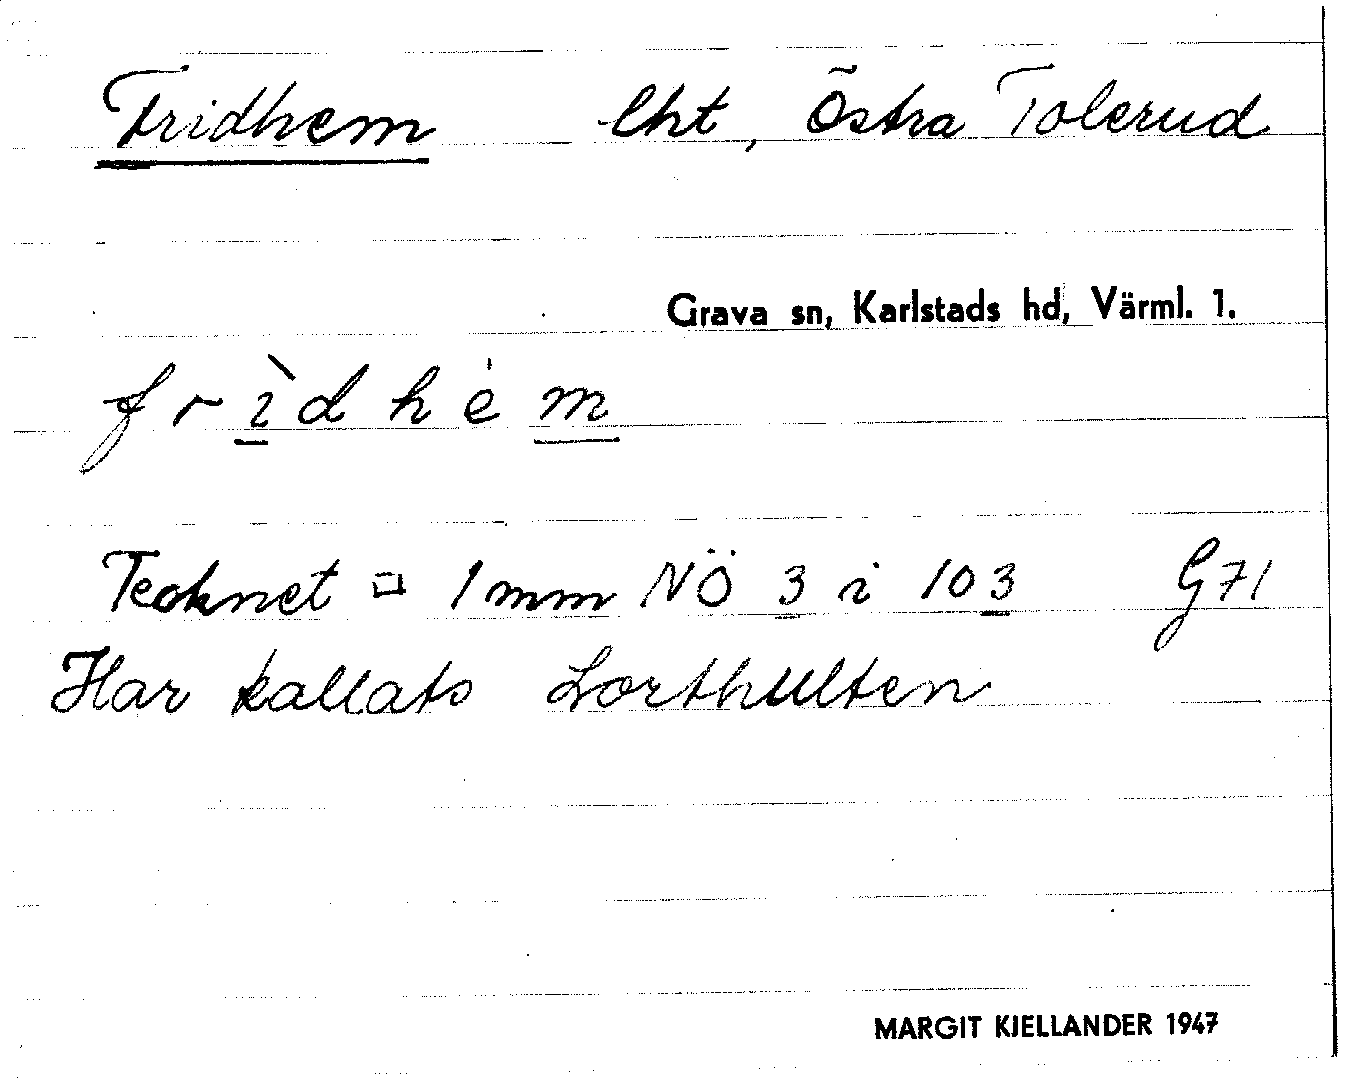 Fridhem lht, Östra Tolerud
Grava sn, Karlstads hd, Värml. 1.
frìdhém
Tecknet □ 1 mm NÖ 3 i 103 G71
Har kallats Lorthulten
MARGIT KJELLANDER 1947